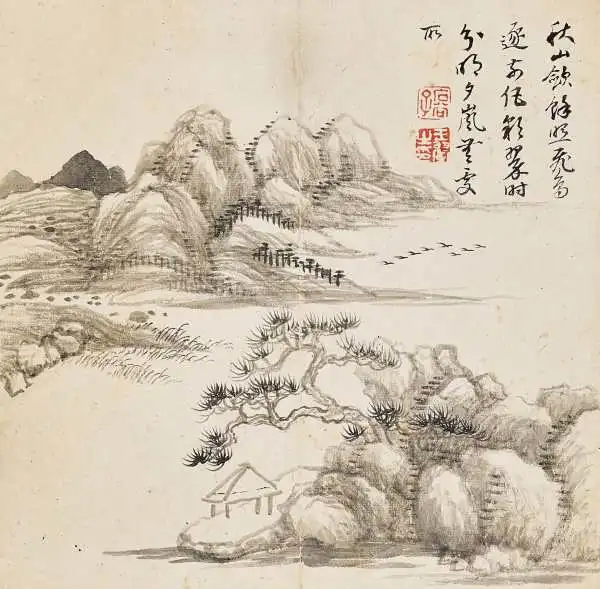 秋山斂餘照飛鳥
逐前侶彩翠時
分明夕嵐無處
所